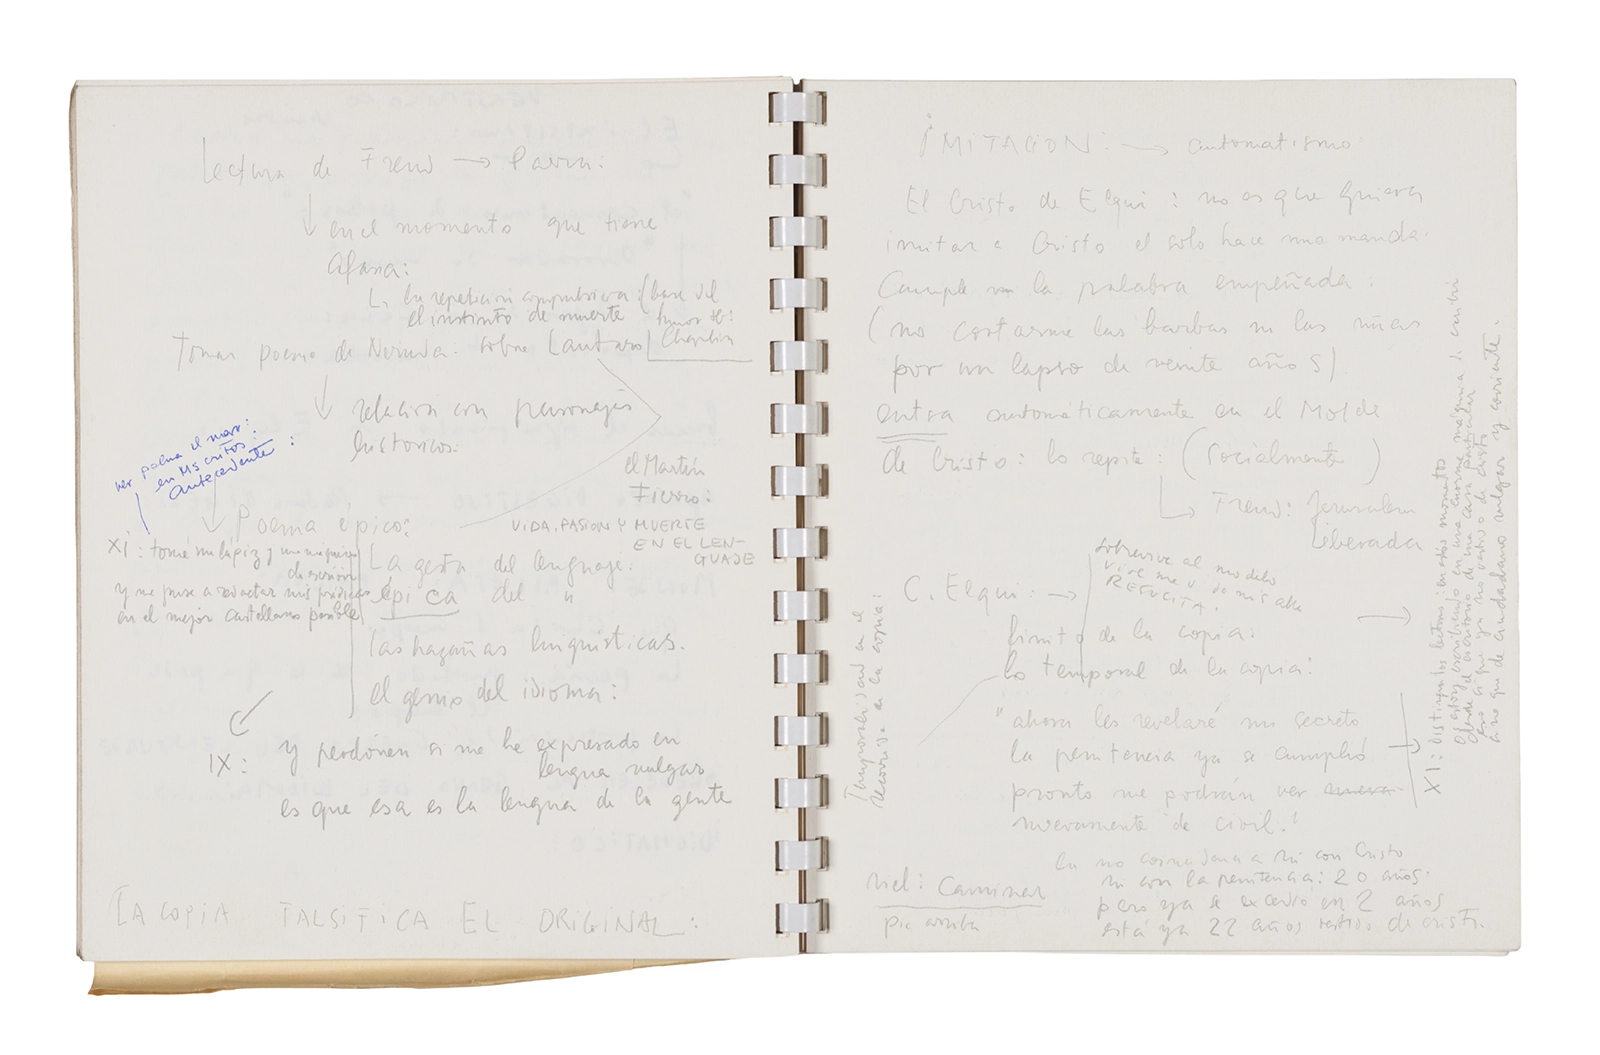 Lectura de Freud → Parra:
↓ en el momento que tiene
Afasia:
↳ la repetición compulsiva: (base del
el instinto de muerte
humor de:
Chaplin
Tomar poema de Neruda: sobre Lautaro
↓ relación con personajes
históricos:
ver poema el mar:
en Ms critos:
antecedente:
el Martín
Fierro:
VIDA, PASION Y MUERTE
EN EL LEN-
GUAJE
Poema épico:
XI: tomé mi lápiz y
y me puse a redactar mis prédicas
en el mejor castellano posible
La gesta del lenguaje:
épica del "
las hazañas lingüísticas.
el genio del idioma:
IX: y perdonen si me he expresado en
lengua vulgar
es que esa es la lengua de la gente
LA COPIA FALSIFICA EL ORIGINAL:
IMITACION: → automatismo:
El Cristo de Elqui: no es que quiera
imitar a Cristo el solo hace una manda.
Cumple la palabra empeñada:
(no cortarme las barbas ni las uñas
por un lapso de veinte años)
entra automáticamente en el Molde
de Cristo: lo repite: (socialmente)
↳ Freud: Jerusalem
Liberada
sobrevive al modelo
vive más allá
RESUCITA!
C. Elqui: →
límite de la copia:
lo temporal de la copia:
Temporalidad en el
recorrido de la copia:
"ahora les revelaré mi secreto
la penitencia ya se cumplió
pronto me podrán ver nueva
nuevamente de civil."
XI: distinguidos lectores: en estos momentos
estoy escribiendo en una enorme máquina de escribir
desde el escritorio de una casa particular
eso sí que ya no vestido de Cristo
sino que de ciudadano vulgar y corriente.
En no cornudana a ni con Cristo
ni con la penitencia: 20 años:
pero ya se excedió en 2 años
está ya 22 años vestido de cristo.
riel: Caminar
pie arriba